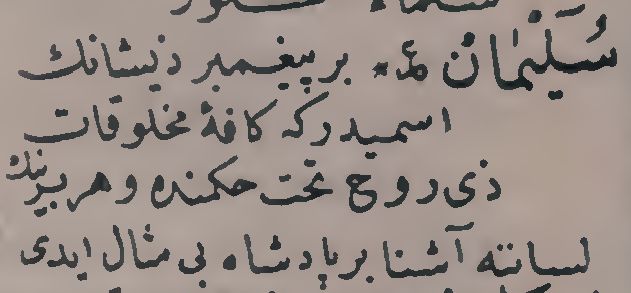 سُلَيْمَان ع م بر پيغمبر ذيشانك
اسميدر كه كافهٔ مخلوقات
ذى روح تحت حكمنده و هر برينك
لسانته آشنا بر پادشاه بى مثال ايدى